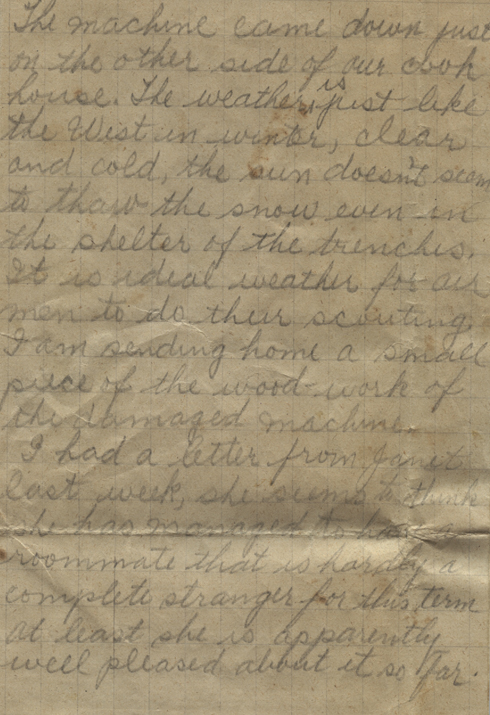 The machine came down just
on the other side of our cook
house. The weather is just like
the West in winter, clear
and cold, the sun doesn't seem
to thaw the snow even in
the shelter of the trenches.
It is ideal weather for air
men to do their scouting.
I am sending home a small
piece of the wood-work of
the damaged machine.
I had a letter from Janet
last week, she seems to think
she has managed to have a
roommate that is hardly a
complete stranger for this term
at least she is apparently
well pleased about it so far.